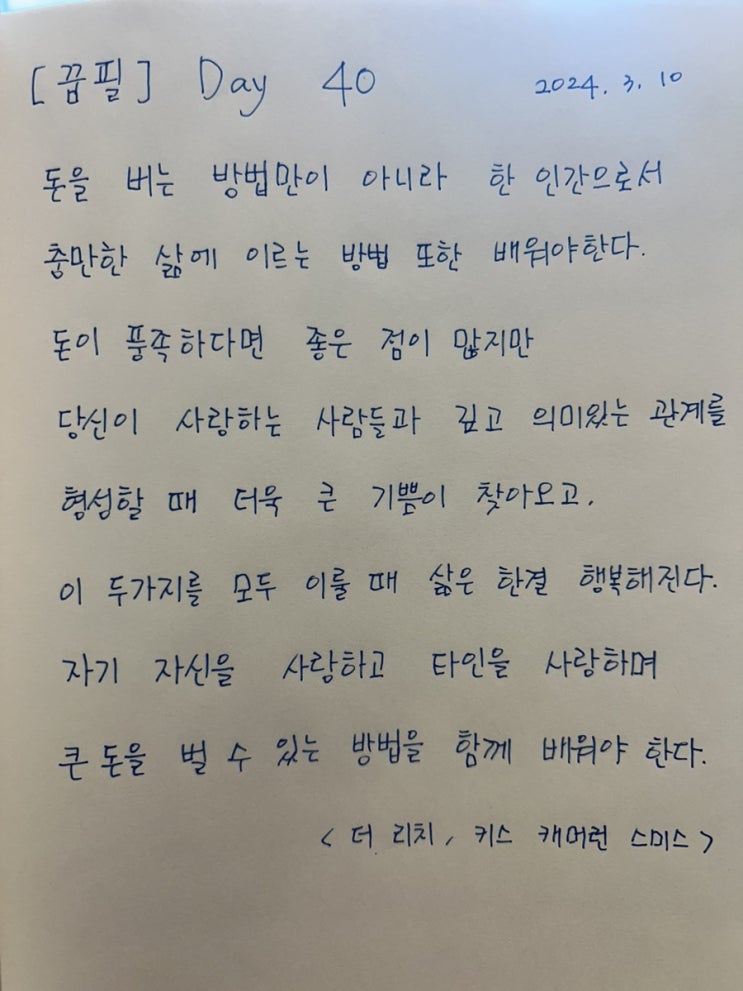 [꿈필] Day 40 2024. 3. 10
돈을 버는 방법만이 아니라 한 인간으로서
충만한 삶에 이르는 방법 또한 배워야한다.
돈이 풍족하다면 좋은 점이 많지만
당신이 사랑하는 사람들과 깊고 의미있는 관계를
형성할 때 더욱 큰 기쁨이 찾아오고,
이 두가지를 모두 이룰 때 삶은 한결 행복해진다.
자기 자신을 사랑하고 타인을 사랑하며
큰 돈을 벌 수 있는 방법을 함께 배워야 한다.
<더 리치, 키스 캐머런 스미스>